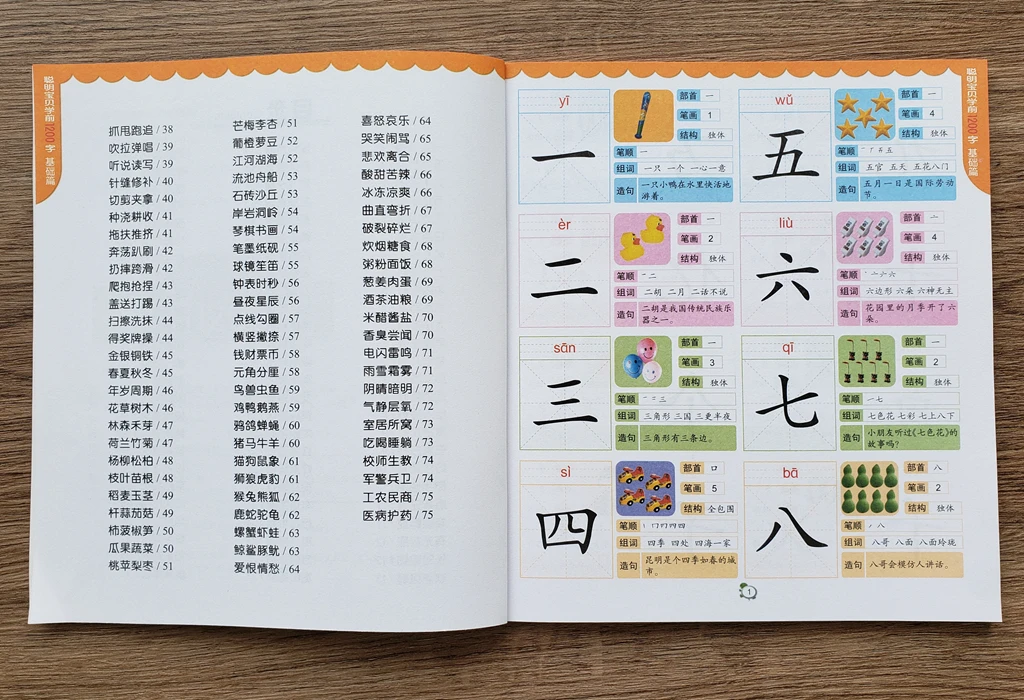 聪明宝贝学前1200字 基础篇
抓甩跑追 / 38
吹拉弹唱 / 39
听说读写 / 39
针缝修补 / 40
切剪夹拿 / 40
种浇耕收 / 41
拖扶推挤 / 41
奔荡趴刷 / 42
扔摔跨滑 / 42
爬抱抢捏 / 43
盖送打踢 / 43
扫擦洗抹 / 44
得奖牌操 / 44
金银铜铁 / 45
春夏秋冬 / 45
年岁周期 / 46
花草树木 / 46
林森禾芽 / 47
荷兰竹菊 / 47
杨柳松柏 / 48
枝叶苗根 / 48
稻麦玉茎 / 49
杆蒜茄菇 / 49
柿菠椒笋 / 50
瓜果蔬菜 / 50
桃苹梨枣 / 51
芒梅李杏 / 51
葡橙萝豆 / 52
江河湖海 / 52
流池舟船 / 53
石砖沙丘 / 53
岸岩洞岭 / 54
琴棋书画 / 54
笔墨纸砚 / 55
球镜笙笛 / 55
钟表时秒 / 56
昼夜星辰 / 56
点线勾圈 / 57
横竖撇捺 / 57
钱财票币 / 58
元角分厘 / 58
鸟兽虫鱼 / 59
鸡鸭鹅燕 / 59
鸦鸽蝉蝇 / 60
猪马牛羊 / 60
猫狗鼠象 / 61
狮狼虎豹 / 61
猴兔熊狐 / 62
鹿蛇驼龟 / 62
螺蟹虾蛙 / 63
鲸鲨豚鱿 / 63
爱恨情愁 / 64
喜怒哀乐 / 64
哭笑闹骂 / 65
悲欢离合 / 65
酸甜苦辣 / 66
冰冻凉爽 / 66
曲直弯折 / 67
破裂碎烂 / 67
炊烟糖食 / 68
粥粉面饭 / 68
葱姜肉蛋 / 69
酒茶油粮 / 69
米醋酱盐 / 70
香臭尝闻 / 70
电闪雷鸣 / 71
雨雪霜雾 / 71
阴晴暗明 / 72
气静层氧 / 72
室居所窝 / 73
吃喝睡躺 / 73
校师生教 / 74
军警兵卫 / 74
工农民商 / 75
医病护药 / 75
yī
一
部首 一
笔画 1
结构 独体
笔顺 一
组词 一只 一个 一心一意
造句 一只小鸭在水里快活地
游着。
èr
二
部首 一
笔画 2
结构 独体
笔顺 一 二
组词 二胡 二月 二话不说
造句 二胡是我国传统民族乐
器之一。
sān
三
部首 一
笔画 3
结构 独体
笔顺 一 二 三
组词 三角形 三国 三更半夜
造句 三角形有三条边。
sì
四
部首 口
笔画 5
结构 全包围
笔顺
组词 四季 四处 四海一家
造句 昆明是个四季如春的城
市。
wǔ
五
部首 一
笔画 4
结构 独体
笔顺
组词 五官 五天 五花八门
造句 五月一日是国际劳动
节。
liù
六
部首 亠
笔画 4
结构 独体
笔顺
组词 六边形 六朵 六神无主
造句 花园里的月季开了六
朵。
qī
七
部首 一
笔画 2
结构 独体
笔顺 一 七
组词 七色花 七彩 七上八下
造句 小朋友听过《七色花》的
故事吗?
bā
八
部首 八
笔画 2
结构 独体
笔顺 丿 八
组词 八哥 八面 八面玲珑
造句 八哥会模仿人讲话。
1
聪明宝贝学前1200字 基础篇